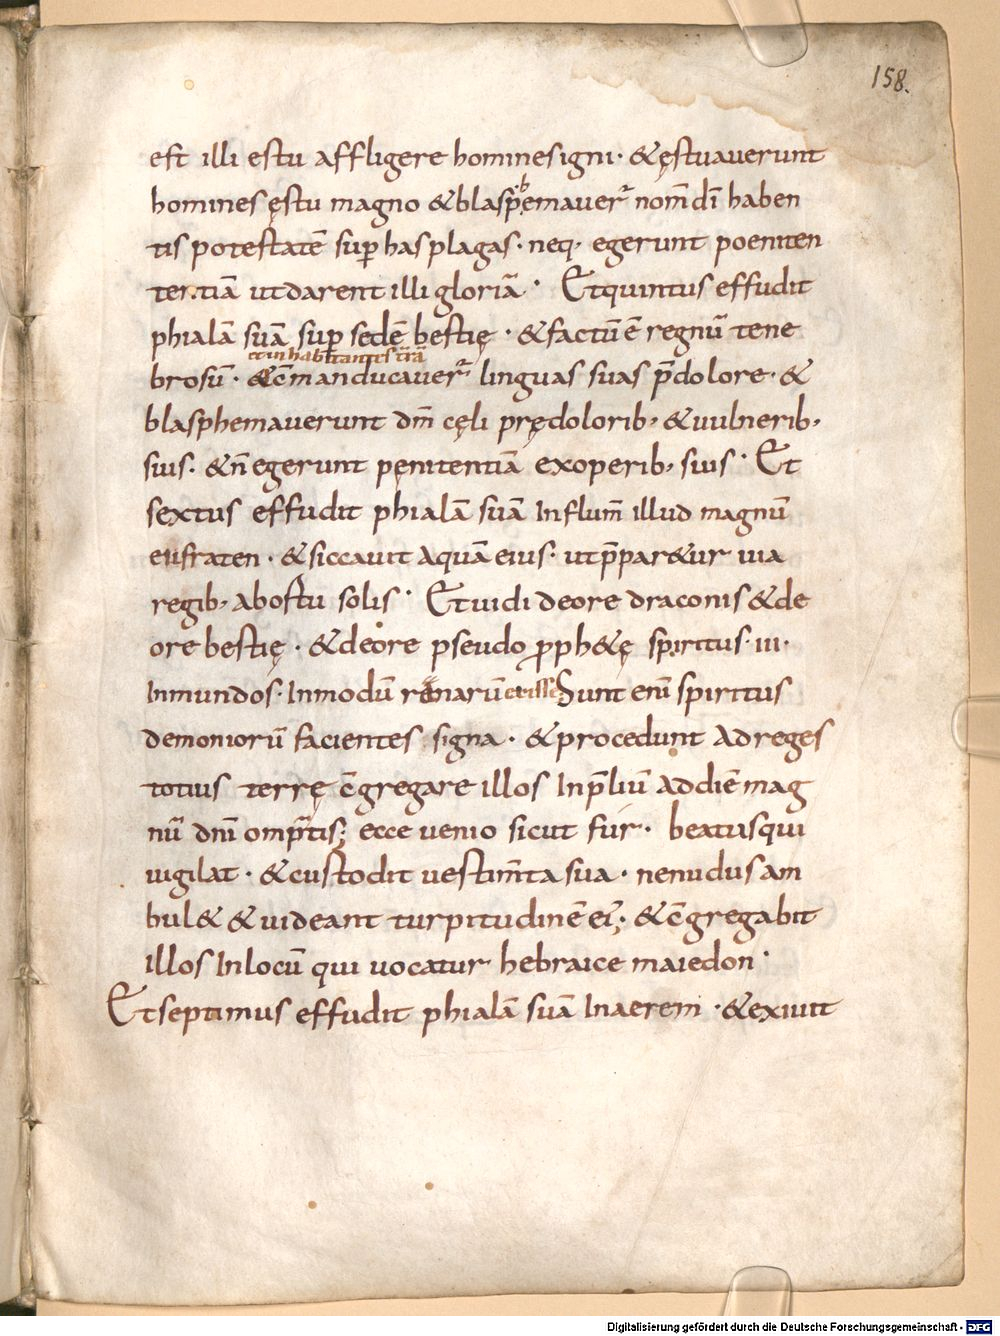 158.
est illi estu affligere homines igni· & ęstuauerunt
homines ęstu magno & blaspħemauer̄ nom̄ dī haben
tis potestatē sup̄ has plagas· neq· egerunt poeniten
tentiā ut darent illi gloriā· Et quintus effudit
phialā suā sup̄ sedē bestię· & factū ē regnū tene
et inhabitantes t̄rā
brosū· & cōmanducauer̄ linguas suas p̄ dolore· &
blasphemauerunt dm̄ cęli prę dolorib· & uulnerib·
suis· & n̄ egerunt pęnitentiā ex operib· suis· Et
sextus effudit phialā suā In flum̄ illud magnū
eufraten· & siccauit aquā eius· ut p̄par&ur uia
regib· ab ostu solis· Et uidi de ore draconis & de
ore bestię· & de ore pseudo p̄roph&ę spiritus· III·
Inmundos· In modū ranarū Sunt enī spiritus
demoniorū facientes signa· & procedunt ad reges
totius terrę c̄gregare illos In p̄liū ad diē mag
nū dnī omp̄tis; ecce uenio sicut fur· beatus qui
uigilat· & custodit uestim̄ta sua· ne nudus am
bul& & uideant turpitudinē ei· & c̄gregabit
illos In locū qui uocatur hebraice maiedon·
Et septimus effudit phialā suā In aerem· & exiuit
Digitalisierung gefördert durch die Deutsche Forschungsgemeinschaft - DFG